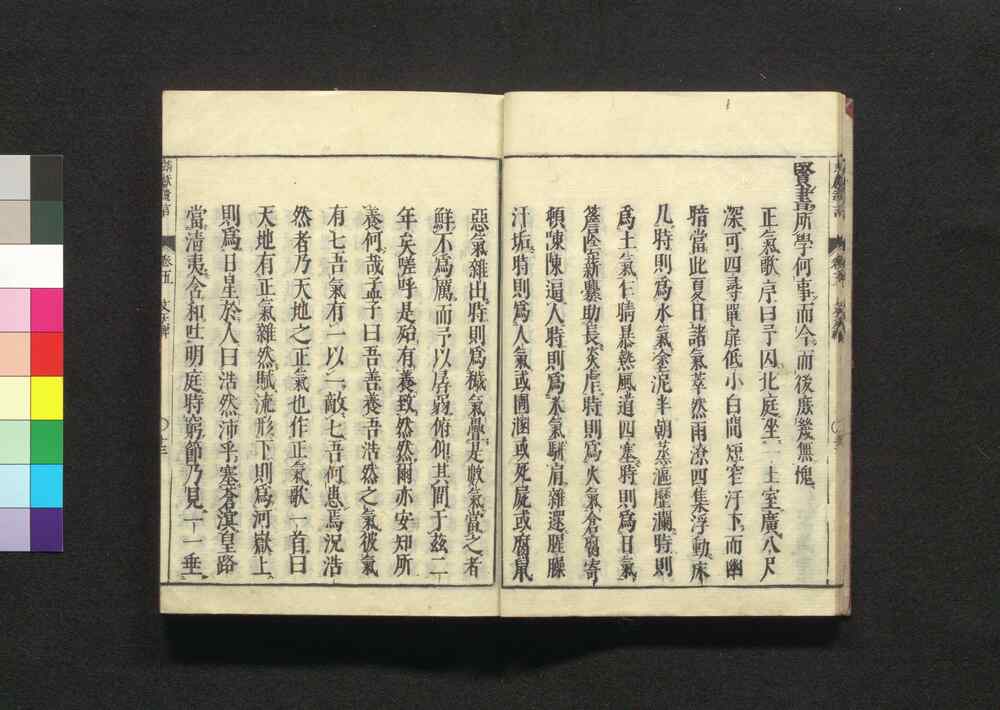 賢書所學何事而今而後庶幾無愧
正氣歌序曰予囚北庭坐一土室廣八尺
深可四尋單扉低小白間短窄汙下而幽
暗當此夏日諸氣萃然雨潦四集浮動床
几時則爲水氣塗泥半朝蒸漚歷瀾時則
爲土氣乍晴暴熱風道四塞時則爲日氣
簷陰薪爨助長炎虐時則爲火氣倉腐寄
頓陳陳逼人時則爲米氣駢肩雜遝腥臊
汗垢時則爲人氣或圊溷或死屍或腐鼠
惡氣雜出時則爲穢氣疊是數氣當之者
鮮不爲厲而予以孱弱俯仰其間于兹二
年矣嗟呼是殆有養致然然爾亦安知所
養何哉孟子曰吾善養吾浩然之氣彼氣
有七吾氣有一以一敵七吾何患焉況浩
然者乃天地之正氣也作正氣歌一首曰
天地有正氣雜然賦流形下則爲河嶽上
則爲日星於人曰浩然沛乎塞蒼溟皇路
當清夷含和吐明庭時窮節乃見一一垂
卷五